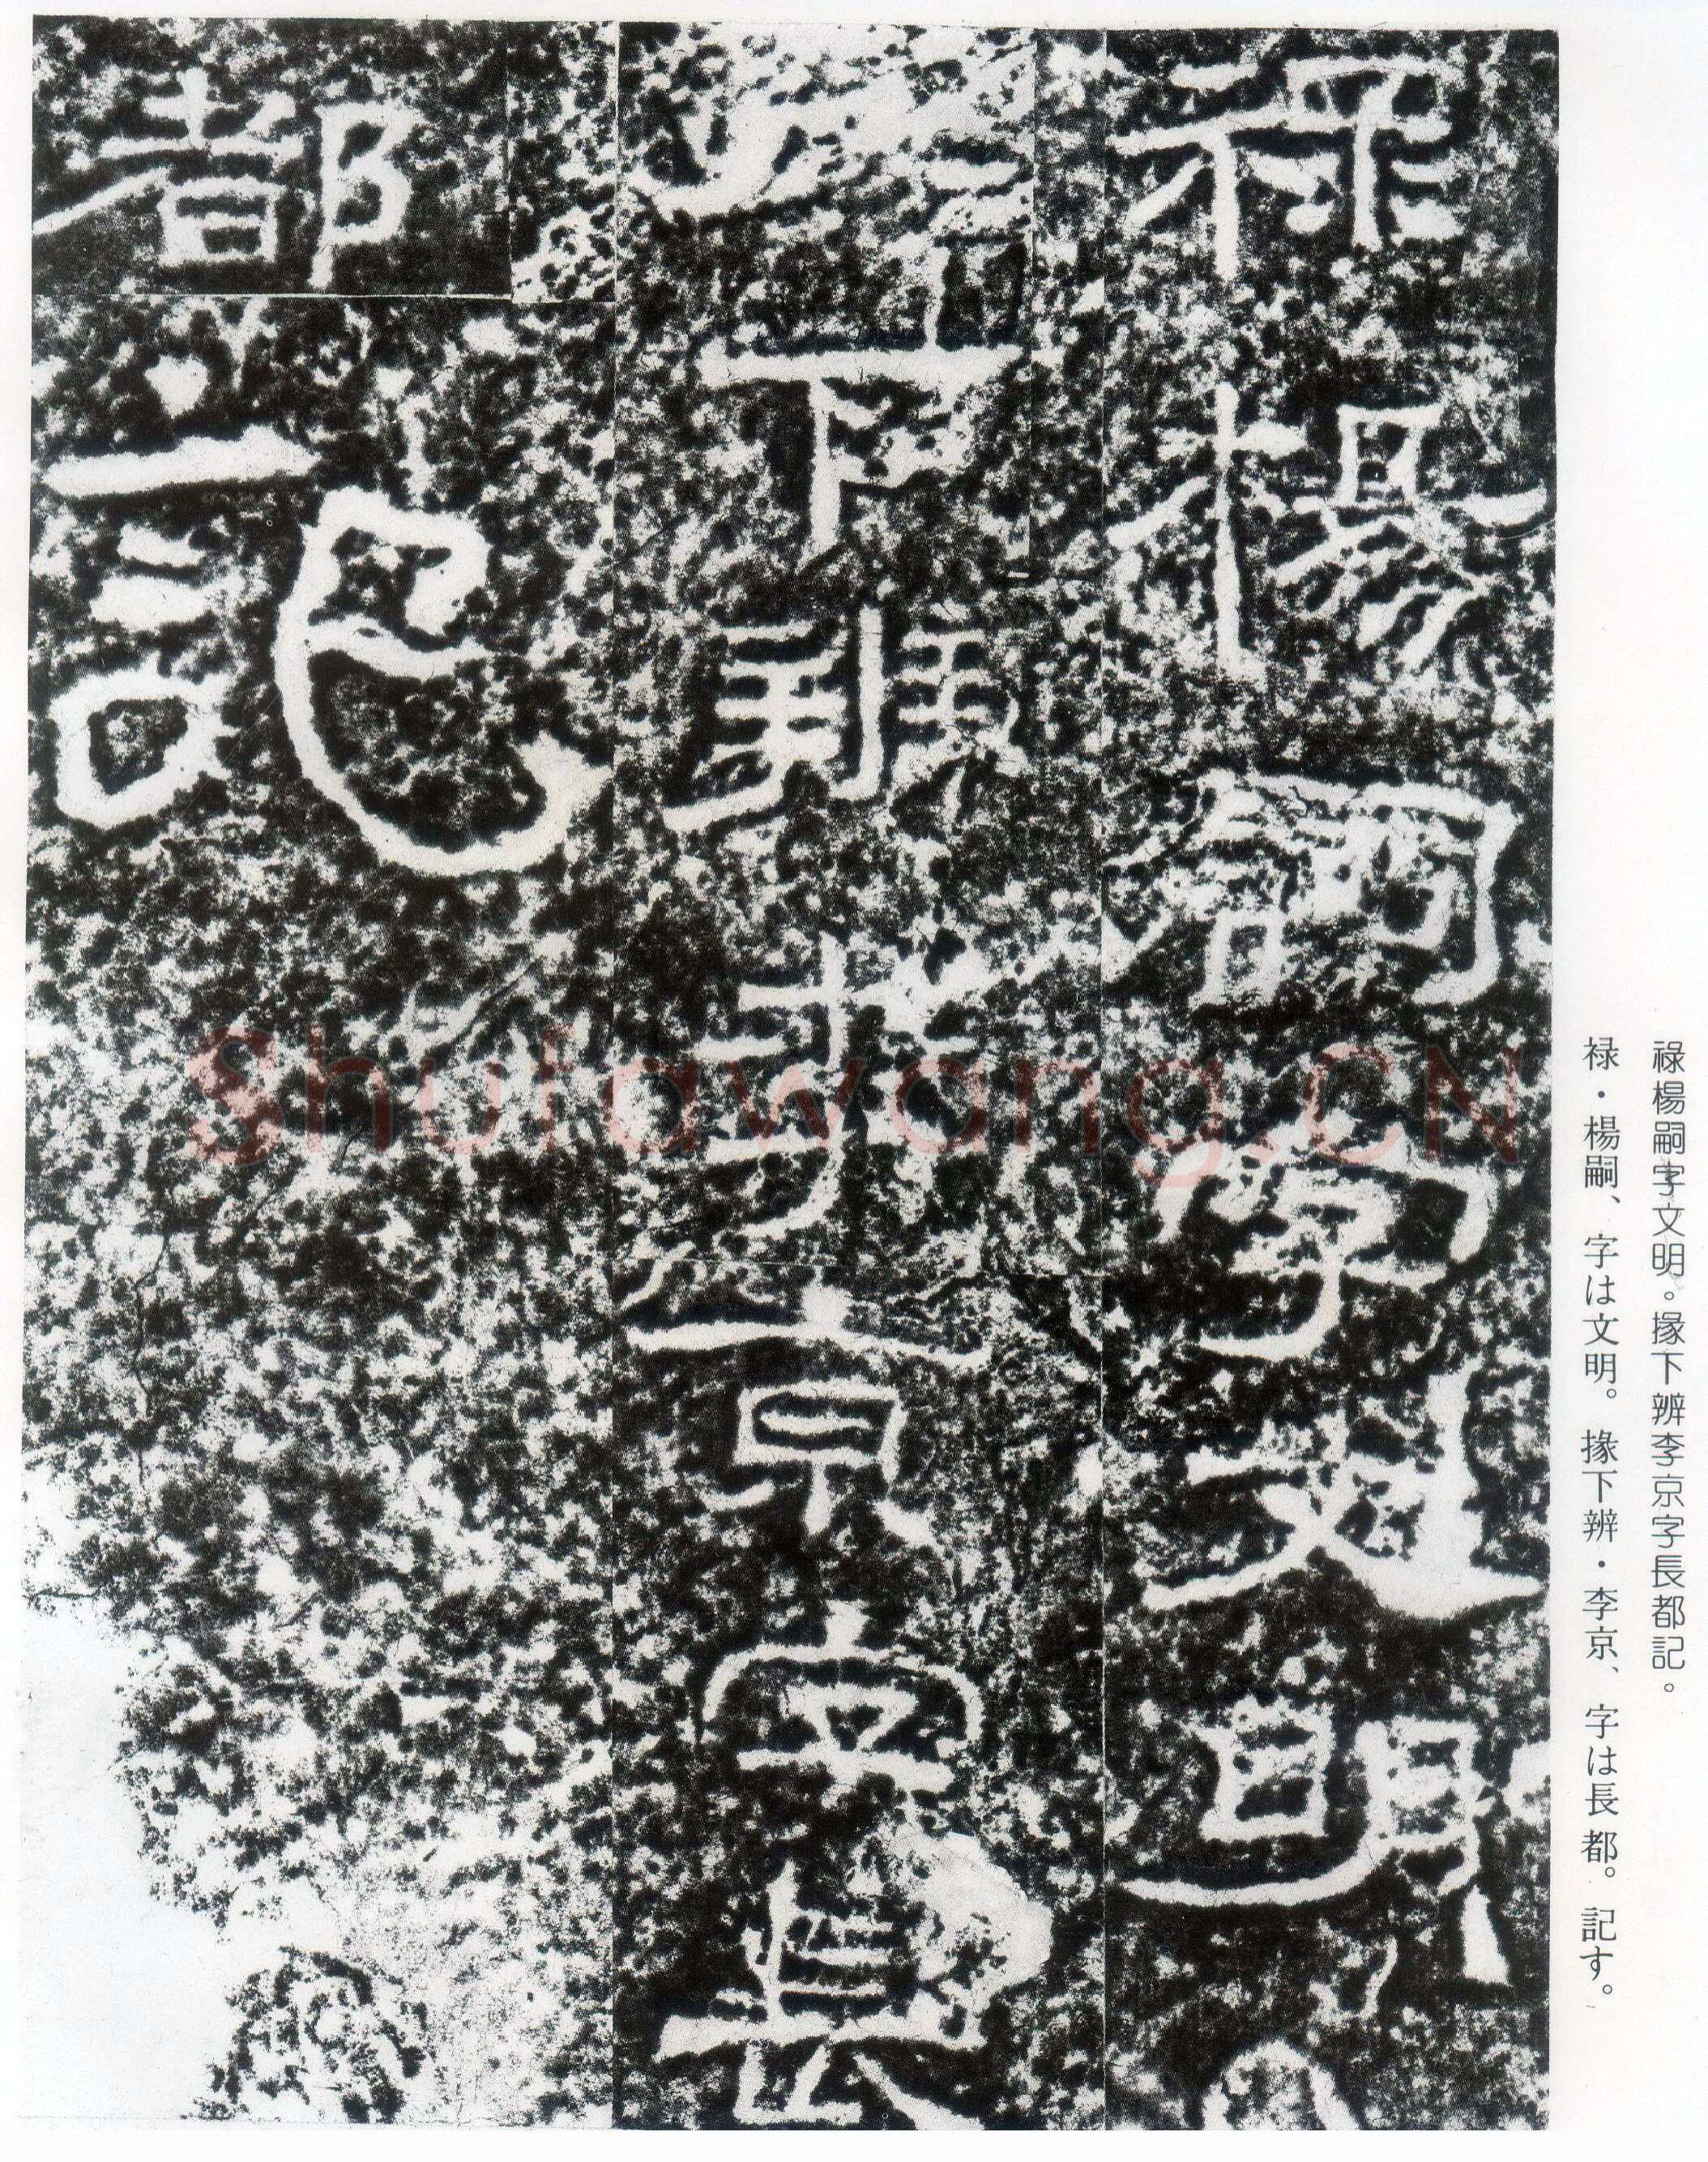 祿楊嗣字文明。掾下辨李京字長都記。
禄・楊嗣、字は文明。掾下辨・李京、字は長都。記す。
祿楊嗣字文明
掾下辨李京字長
都記
Shufawang.CN